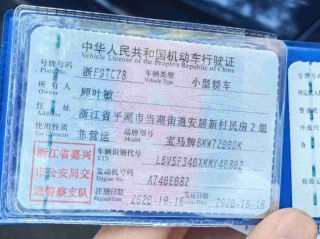 中华人民共和国机动车行驶证
Vehicle License of the People's Republic of China
号牌号码 浙F9TC78 车辆类型 小型轿车
Plate No. Vehicle Type
所有人 顾叶敏
Owner
住址 浙江省平湖市当湖街道安居新村民房2组
Address
使用性质 非营运 品牌型号 宝马牌BMW7200DM
Use Character Model
浙江省嘉兴
市公安局交
通警察支队
车辆识别代号
VIN
发动机号码 A748E0B2
Engine No.
注册日期 2020-10-16 发证日期 2020-10-16
Register Date Issue Date